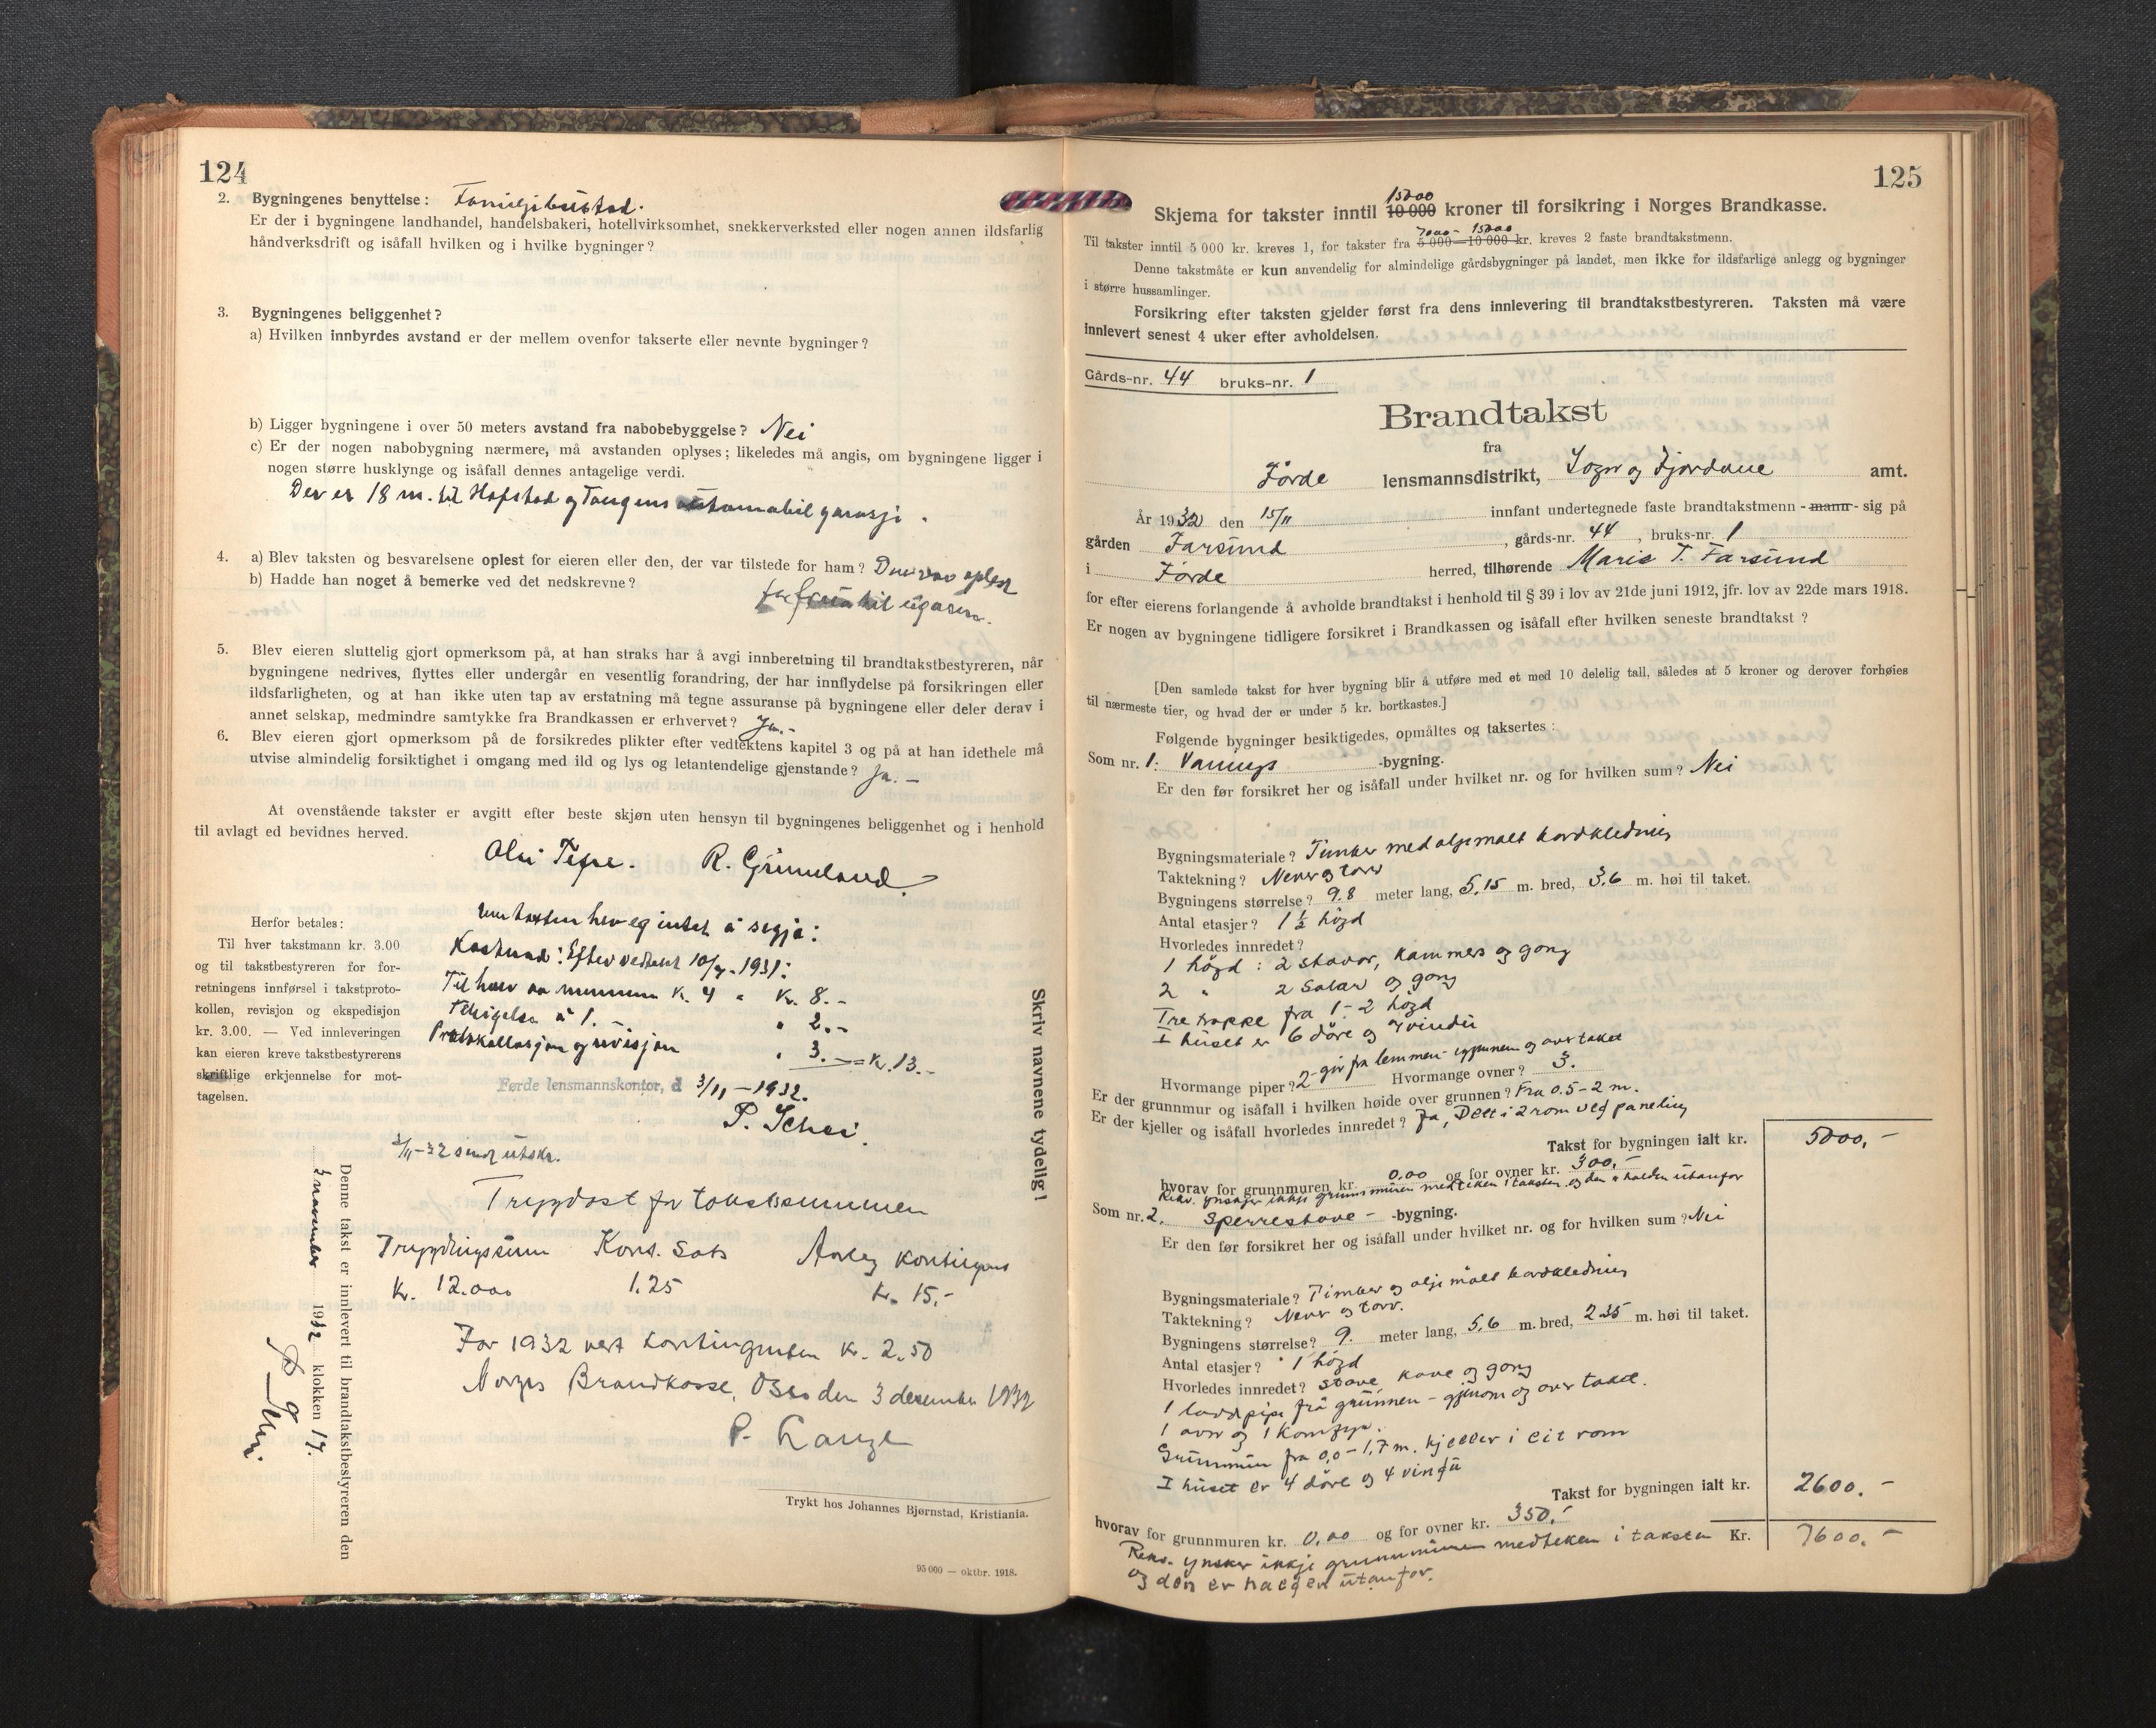 124
2. Bygningenes benyttelse: Familjebustad.
Er der i bygningene landhandel, handelsbakeri, hotellvirksomhet, snekkerverksted eller nogen annen ildsfarlig
håndverksdrift og isåfall hvilken og i hvilke bygninger?
3. Bygningenes beliggenhet?
a) Hvilken innbyrdes avstand er der mellem ovenfor takserte eller nevnte bygninger?
b) Ligger bygningene i over 50 meters avstand fra nabobebyggelse? Nei
c) Er der nogen nabobygning nærmere, må avstanden oplyses; likeledes må angis, om bygningene ligger i
nogen større husklynge og isåfall dennes antagelige verdi.
Der er 18 m. til Hafstad og Tangens automabil garasji.
4. a) Blev taksten og besvarelsene oplest for eieren eller den, der var tilstede for ham? Den vav oplest
b) Hadde han noget å bemerke ved det nedskrevne?
5. Blev eieren sluttelig gjort opmerksom på, at han straks har å avgi innberetning til brandtakstbestyreren, når
bygningene nedrives, flyttes eller undergår en vesentlig forandring, der har innflydelse på forsikringen eller
ildsfarligheten, og at han ikke uten tap av erstatning må tegne assuranse på bygningene eller deler derav i
annet selskap, medmindre samtykke fra Brandkassen er erhvervet? Ja.-
6. Blev eieren gjort opmerksom på de forsikredes plikter efter vedtektens kapitel 3 og på at han idethele må
utvise almindelig forsiktighet i omgang med ild og lys og letantendelige gjenstande? Ja. -
At ovenstående takster er avgitt efter beste skjøn uten hensyn til bygningenes beliggenhet og i henhold
til avlagt ed bevidnes herved.
R. Grimeland.
Herfor betales:
Til hver takstmann kr. 3.00
og til takstbestyreren for for-
retningens innførsel i takstproto-
kollen, revisjon og ekspedisjon
kr. 3.00. — Ved innleveringen
kan eieren kreve takstbestyrerens
skriftlige erkjennelse for mot-
tagelsen.
Um taksten hev eg inkst å segja:
Kostnad: Efter vedtekt 10/4-1931:
Til hver av mennene K. 4 " Kr. 8.-
" 2.-
Protokollasjon og revisjon " 3.- = Kr. 13.-
Førde lensmannskontor, d 3/11-1932.
P. Schei.
3/11-32 sendt utskr.
Trygdast for takstsummen
Trygdingssum Kont. Sats Aarleg kontingent
Kr. 12.000 1.25 kr. 15.-
For 1932 vert kontingenten kr. 2.50
Norges Brandkasse, Oslo den 3 desember 1932
P. Lange
Denne takst er innlevert til brandtakstbestyreren den
3 november 1932 klokken 17.
Skriv navnene tydelig!
Trykt hos Johannes Bjørnstad, Kristiania.
95 000 — oktbr. 1918.
125
15000
Skjema for takster inntil 10 000 kroner til forsikring i Norges Brandkasse.
7000- 15000
Til takster inntil 5 000 kr. kreves 1, for takster fra 5 000—10 000 kr. kreves 2 faste brandtakstmenn.
Denne takstmåte er kun anvendelig for almindelige gårdsbygninger på landet, men ikke for ildsfarlige anlegg og bygninger
i større hussamlinger.
Forsikring efter taksten gjelder først fra dens innlevering til brandtakstbestyreren. Taksten må være
innlevert senest 4 uker efter avholdelsen.
Gårds-nr. 44 bruks-nr. 1
Brandtakst
fra
Förde lensmannsdistrikt, Sogn og Fjordane amt.
År 1932 den 15/11 innfant undertegnede faste brandtakstmenn - mann - sig på
gården Farsund, gårds-nr. 44, bruks-nr. 1
i Förde herred, tilhørende Marie T. Farsund
for efter eierens forlangende å avholde brandtakst i henhold til § 39 i lov av 21de juni 1912, jfr. lov av 22de mars 1918.
Er nogen av bygningene tidligere forsikret i Brandkassen og isåfall efter hvilken seneste brandtakst?
[Den samlede takst for hver bygning blir å utføre med et med 10 delelig tall, således at 5 kroner og derover forhøies
til nærmeste tier, og hvad der er under 5 kr. bortkastes.]
Følgende bygninger besiktigedes, opmåltes og taksertes:
Som nr. 1: Vanings -bygning.
Er den før forsikret her og isåfall under hvilket nr. og for hvilken sum? Nei
Bygningsmateriale? Timber med oljemalt bordkledning
Taktekning? Never og torv
Bygningens størrelse? 9.8 meter lang, 5.15 m. bred, 3.6 m. høi til taket.
Antal etasjer? 1 1/2 högd
Hvorledes innredet?
1 högd: 2 stovor, kammers og gong
2 " 2 Salar og gong
Tretrappe fra 1-2 högd
I huset er 6 döre og 9 vindu
Hvormange piper? 2 går fra lemmen igjennem og over taket Hvormange ovner? 3.
Er der grunnmur og isåfall i hvilken høide over grunnen? Fra 0.5-2 m.
Er der kjeller og isåfall hvorledes innredet? Ja, Delt i 2 rom ved paneling
Takst for bygningen ialt kr. 5000,-
hvorav for grunnmuren kr. 0.00 og for ovner kr. 300.-
Rekv. ynskjer ikkje grunnmuren medteken i taksten og den er halden utanfor
Som nr. 2. Sperrestove- -bygning.
Er den før forsikret her og isåfall under hvilket nr. og for hvilken sum? Nei
Bygningsmateriale? Timber og oljemålt bordkledning
Taktekning? Never og torv.
Bygningens størrelse? 9. meter lang, 5.6 m. bred, 2.35 m. høi til taket.
Antal etasjer? 1 högd
Hvorledes innredet? Stove kove og gong
1 loddpipe frå grunnen - gjenom og over taket.
1 ovn og 1 komfyr.
Grunnmur fra 0,0-1,7 m. kjeller i eit rom
I huset er 4 döre og 4 vindu
Takst for bygningen ialt kr. 2600.-
hvorav for grunnmuren kr. 0,00 og for ovner kr. 350.-
Kr. 7600.-
Rekv. ynsker ikkje grunnmuren medteken i taksten
og den er halden utanfor.